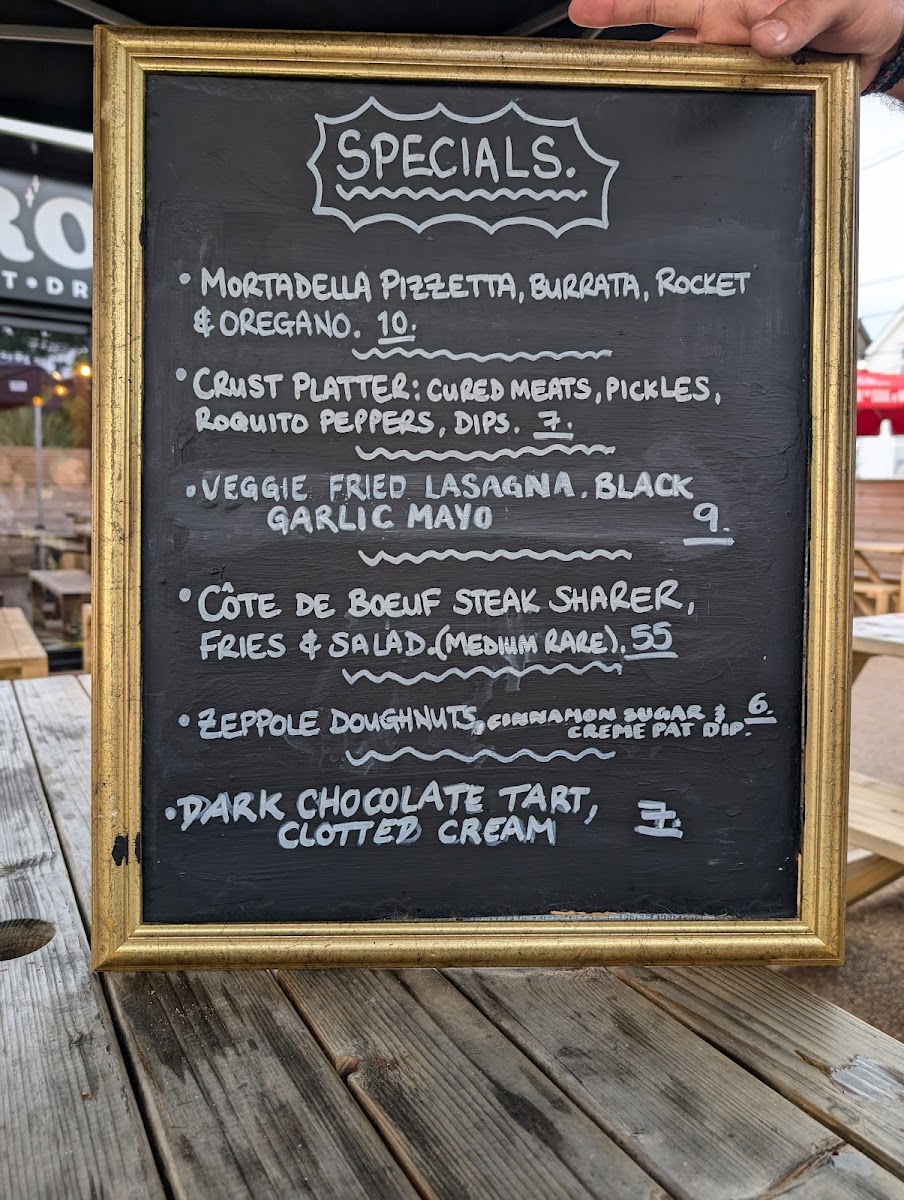 SPECIALS.
• MORTADELLA PIZZETTA, BURRATA, ROCKET
& OREGANO. 10.
• CRUST PLATTER: CURED MEATS, PICKLES,
ROQUITO PEPPERS, DIPS. 7.
• VEGGIE FRIED LASAGNA. BLACK
GARLIC MAYO 9.
• CÔTE DE BOEUF STEAK SHARER,
FRIES & SALAD. (MEDIUM RARE). 55
• ZEPPOLE DOUGHNUTS, CINNAMON SUGAR & 6.
CREME PAT DIP.
• DARK CHOCOLATE TART,
CLOTTED CREAM 7.
RO
T • DR